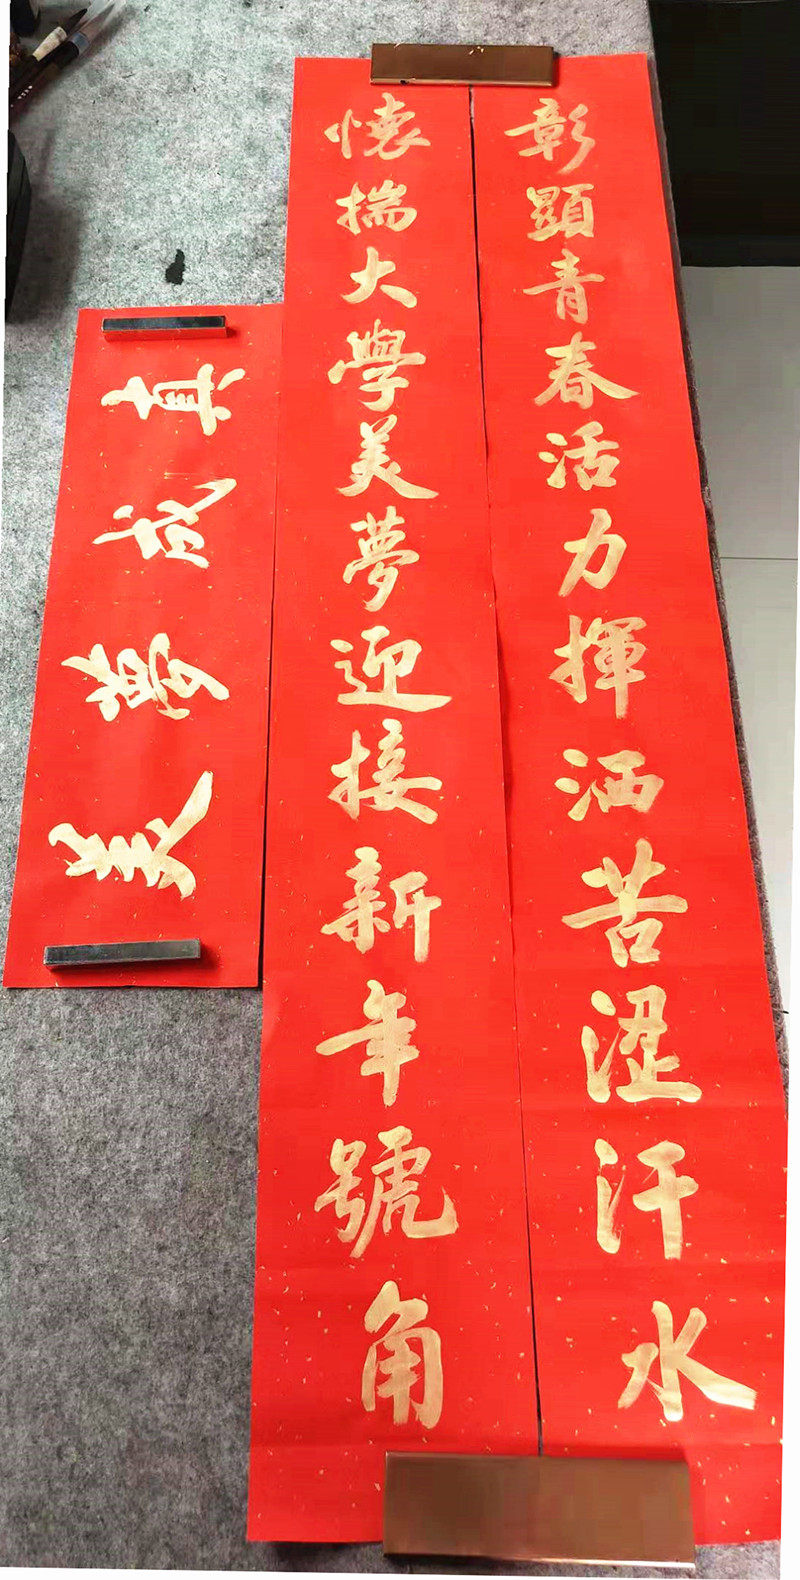 彰顯青春活力揮洒苦涩汗水
懷揣大學美夢迎接新年號角
美夢成真